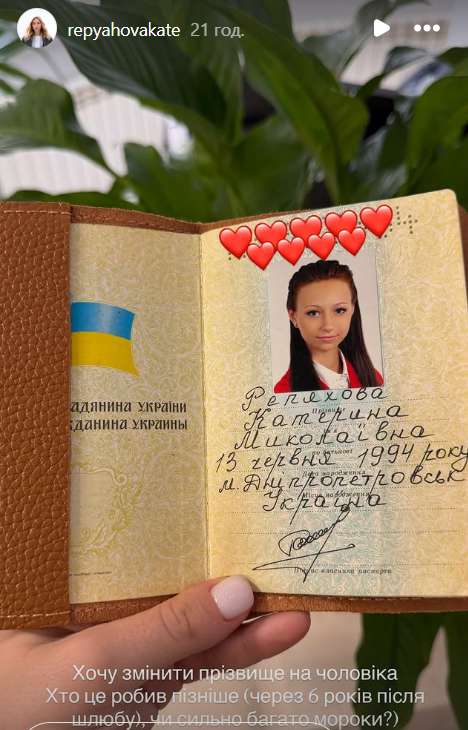 repyahovakate 21 год.
АДЯНИНА УКРАЇНИ
ЖДАНИНА УКРАИНЫ
Репяхова
Катерина
Миколаївна
13 червня 1994 року
м. Дніпропетровськ
Україна
Підпис власника паспорта
Хочу змінити прізвище на чоловіка
Хто це робив пізніше (через 6 років після
шлюбу), чи сильно багато мороки?)